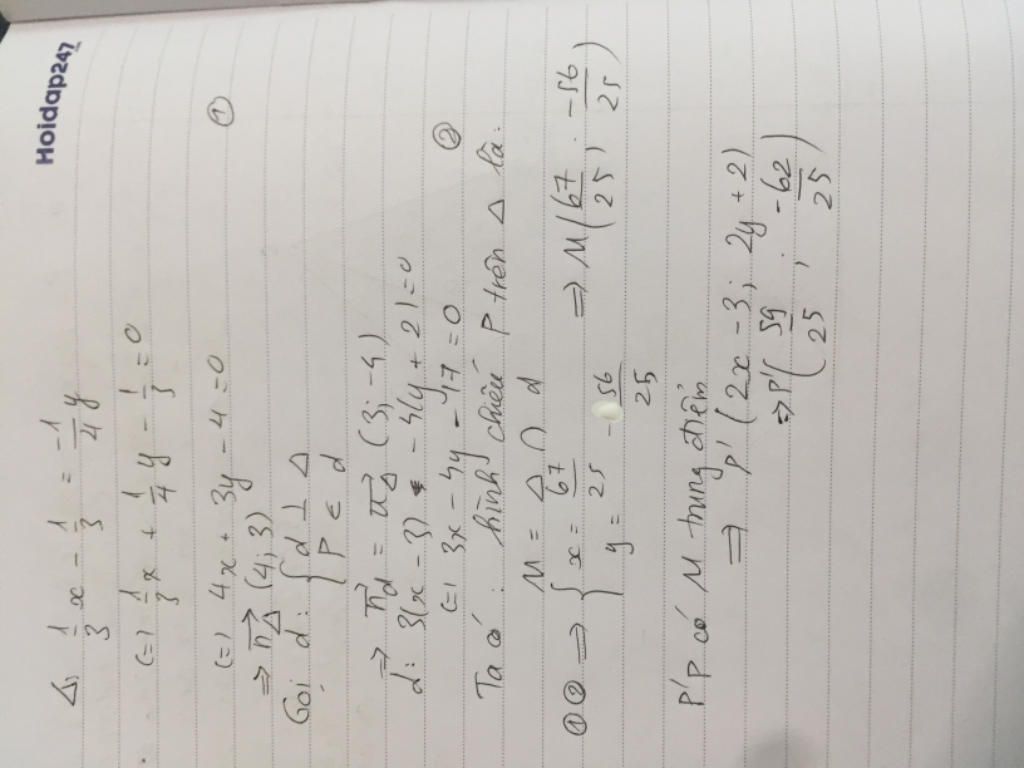 Hoidap247
Δ: 1/3 x - 1/3 = -1/4 y
(=) 1/3 x + 1/4 y - 1/3 = 0
(=) 4x + 3y - 4 = 0 ①
=> n⃗Δ (4; 3)
Gọi d: { d ⊥ Δ
P ∈ d
=> n⃗d = u⃗Δ (3; -4)
d: 3(x - 3) - 4(y + 2) = 0
(=) 3x - 4y - 17 = 0 ②
Ta có: hình chiếu P trên Δ là:
M = Δ ∩ d
①② => { x = 67/25 => M(67/25; -56/25)
y = -56/25
P'P có M trung điểm
=> P' (2x - 3; 2y + 2)
=> P' (59/25; -62/25)